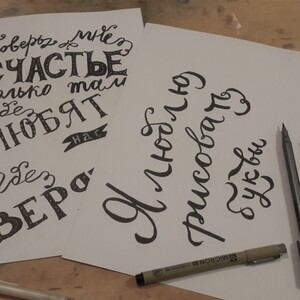 поверь мне
счастье
только там
где
любят
нас
где
верят
Я люблю
рисовать
буквы
MICRON